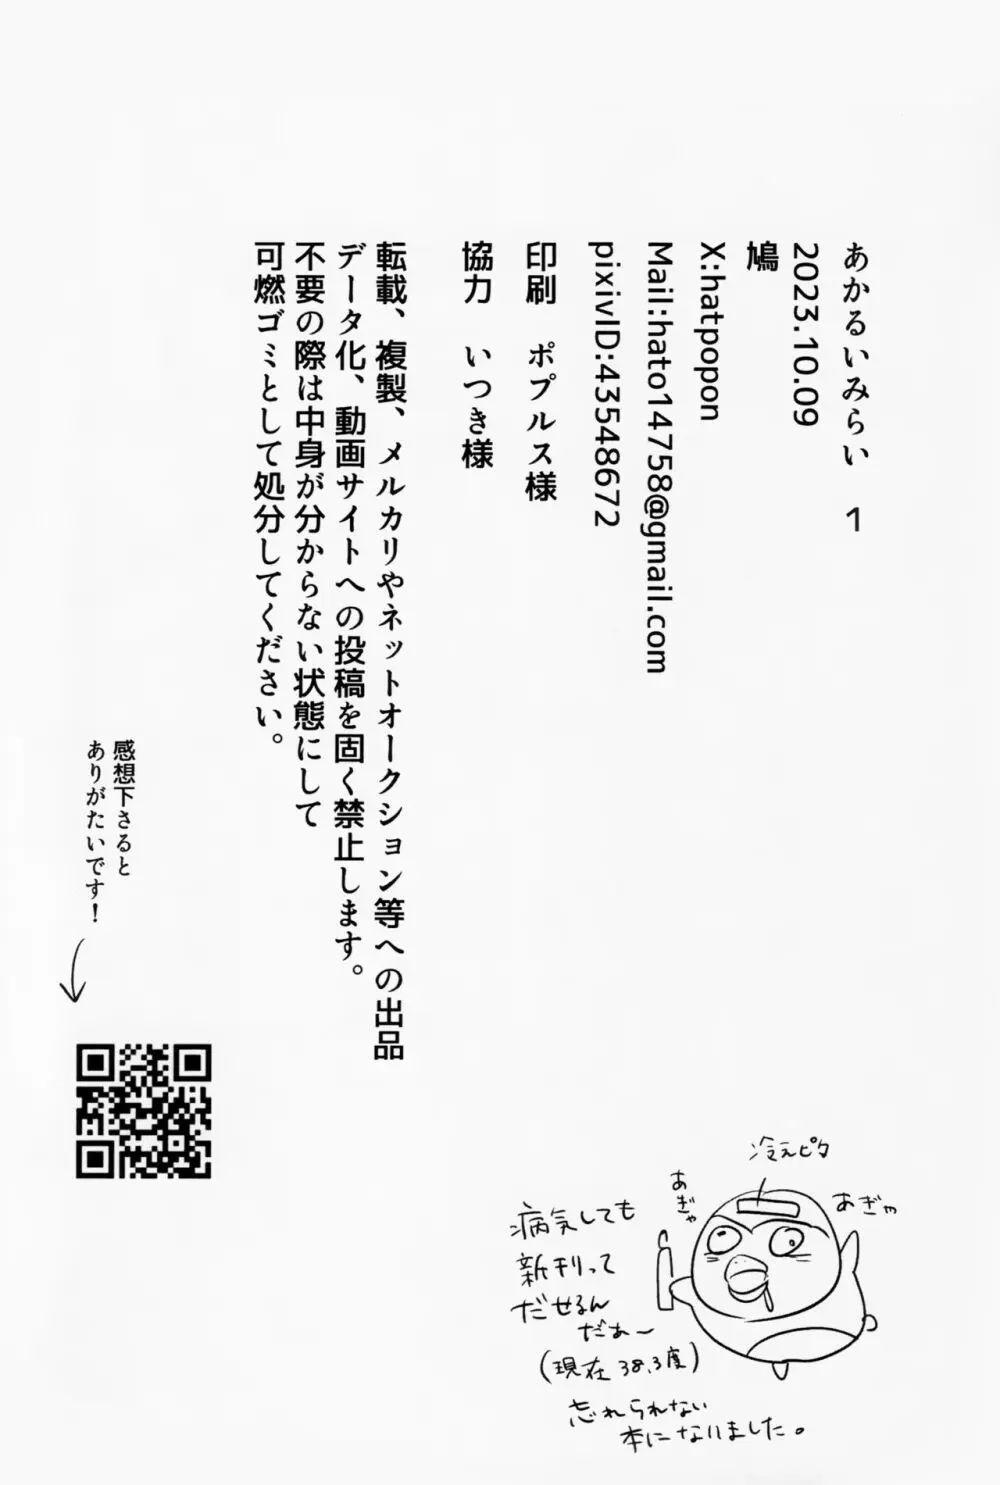 あかるいみらい　1
2023.10.09
鳩
X:hatpopon
Mail:hato14758@gmail.com
pixivID:43548672
印刷　ポプルス様
協力　いつき様
転載、複製、メルカリやネットオークション等への出品
データ化、動画サイトへの投稿を固く禁止します。
不要の際は中身が分からない状態にして
可燃ゴミとして処分してください。
感想下さると
ありがたいです！
冷えピタ
あぎゃ
あぎゃ
病気しても
新刊って
だせるん
だぁー
(現在 38.3度)
忘れられない
本になりました。